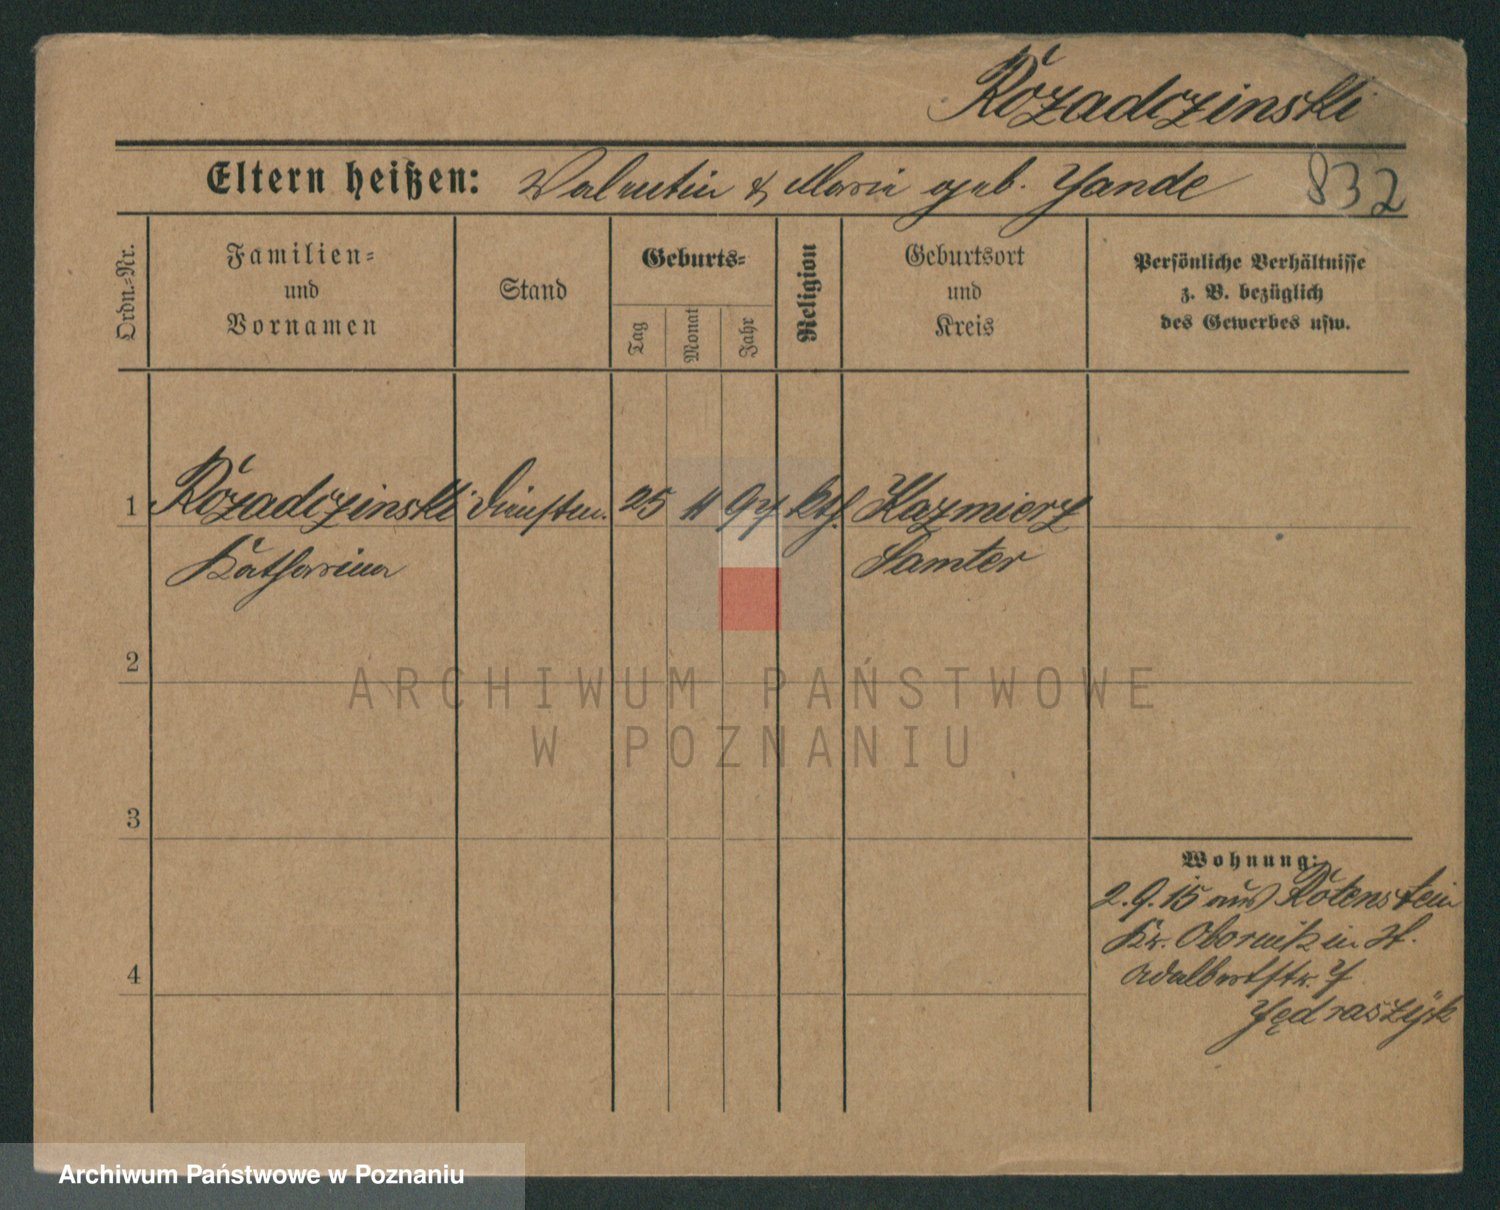 Rożadczinski
Eltern heißen: Valentin & Marie geb. Yande 832
Ordn.-Nr.
Familien-
und
Vornamen
Stand
Geburts-
Tag
Monat
Jahr
Religion
Geburtsort
und
Kreis
Persönliche Verhältnisse
z. B. bezüglich
des Gewerbes usw.
1 Rożadczinski Dienstm. 25 11 97 kth. Kazmierz
Katharina Samter
2
3
4
Wohnung:
2.9.15 aus Rotenstein
Kr. Obornik in H.
Adalbertstr. 7
Jędraszyk
ARCHIWUM PAŃSTWOWE
W POZNANIU
Archiwum Państwowe w Poznaniu